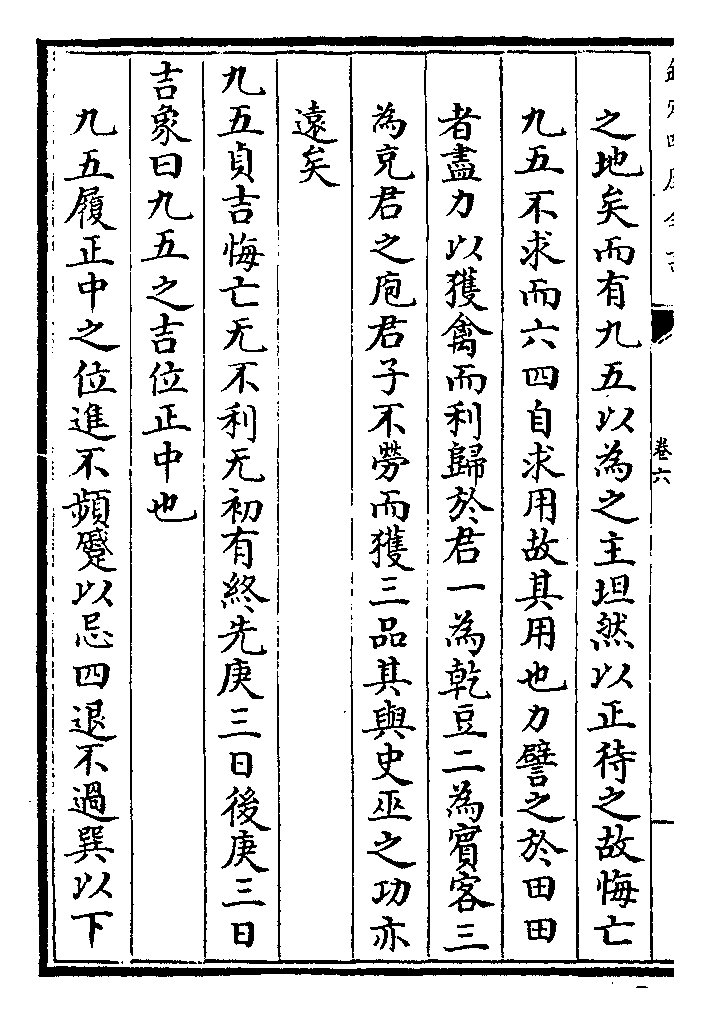 卷六
之地矣而有九五以為之主坦然以正待之故悔亡
九五不求而六四自求用故其用也力譬之於田田
者盡力以獲禽而利歸於君一為乾豆二為賓客三
為充君之庖君子不勞而獲三品其與史巫之功亦
遠矣
九五貞吉悔亡无不利无初有終先庚三日後庚三日
吉象曰九五之吉位正中也
九五履正中之位進不頻蹙以忌四退不過巽以下